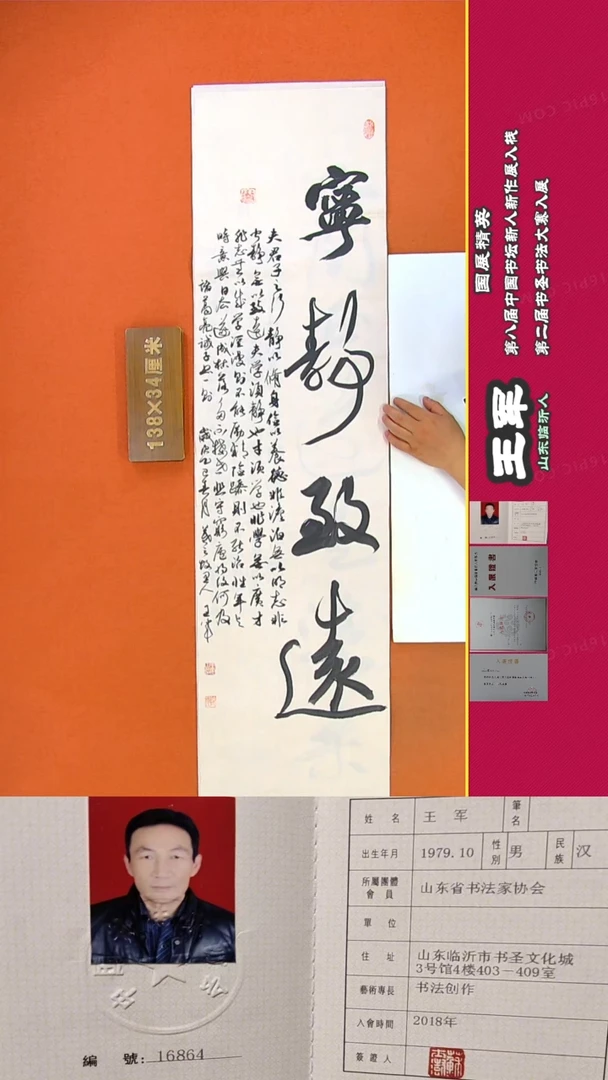 寧靜致遠
夫君子之行静以修身俭以养德非淡泊无以明志非
宁静无以致远夫学须静也才须学也非学无以广才
非志无以成学淫慢则不能励精险躁则不能治性年与
时驰意与日去遂成枯落多不接世悲守穷庐将复何及
诸葛亮诫子书一则
王军
138×34厘米
国展精英
第八届中国书坛新人新作展入展
第二届书圣书法大赛入展
王军
山东临沂人
姓 名 王 军 筆名
出生年月 1979.10 性别 男 民族 汉
所屬團體會員 山东省书法家协会
單 位
住 址 山东临沂市书圣文化城
3号馆4楼403－409室
藝術專長 书法创作
入會時間 2018年
簽證人
編 號: 16864